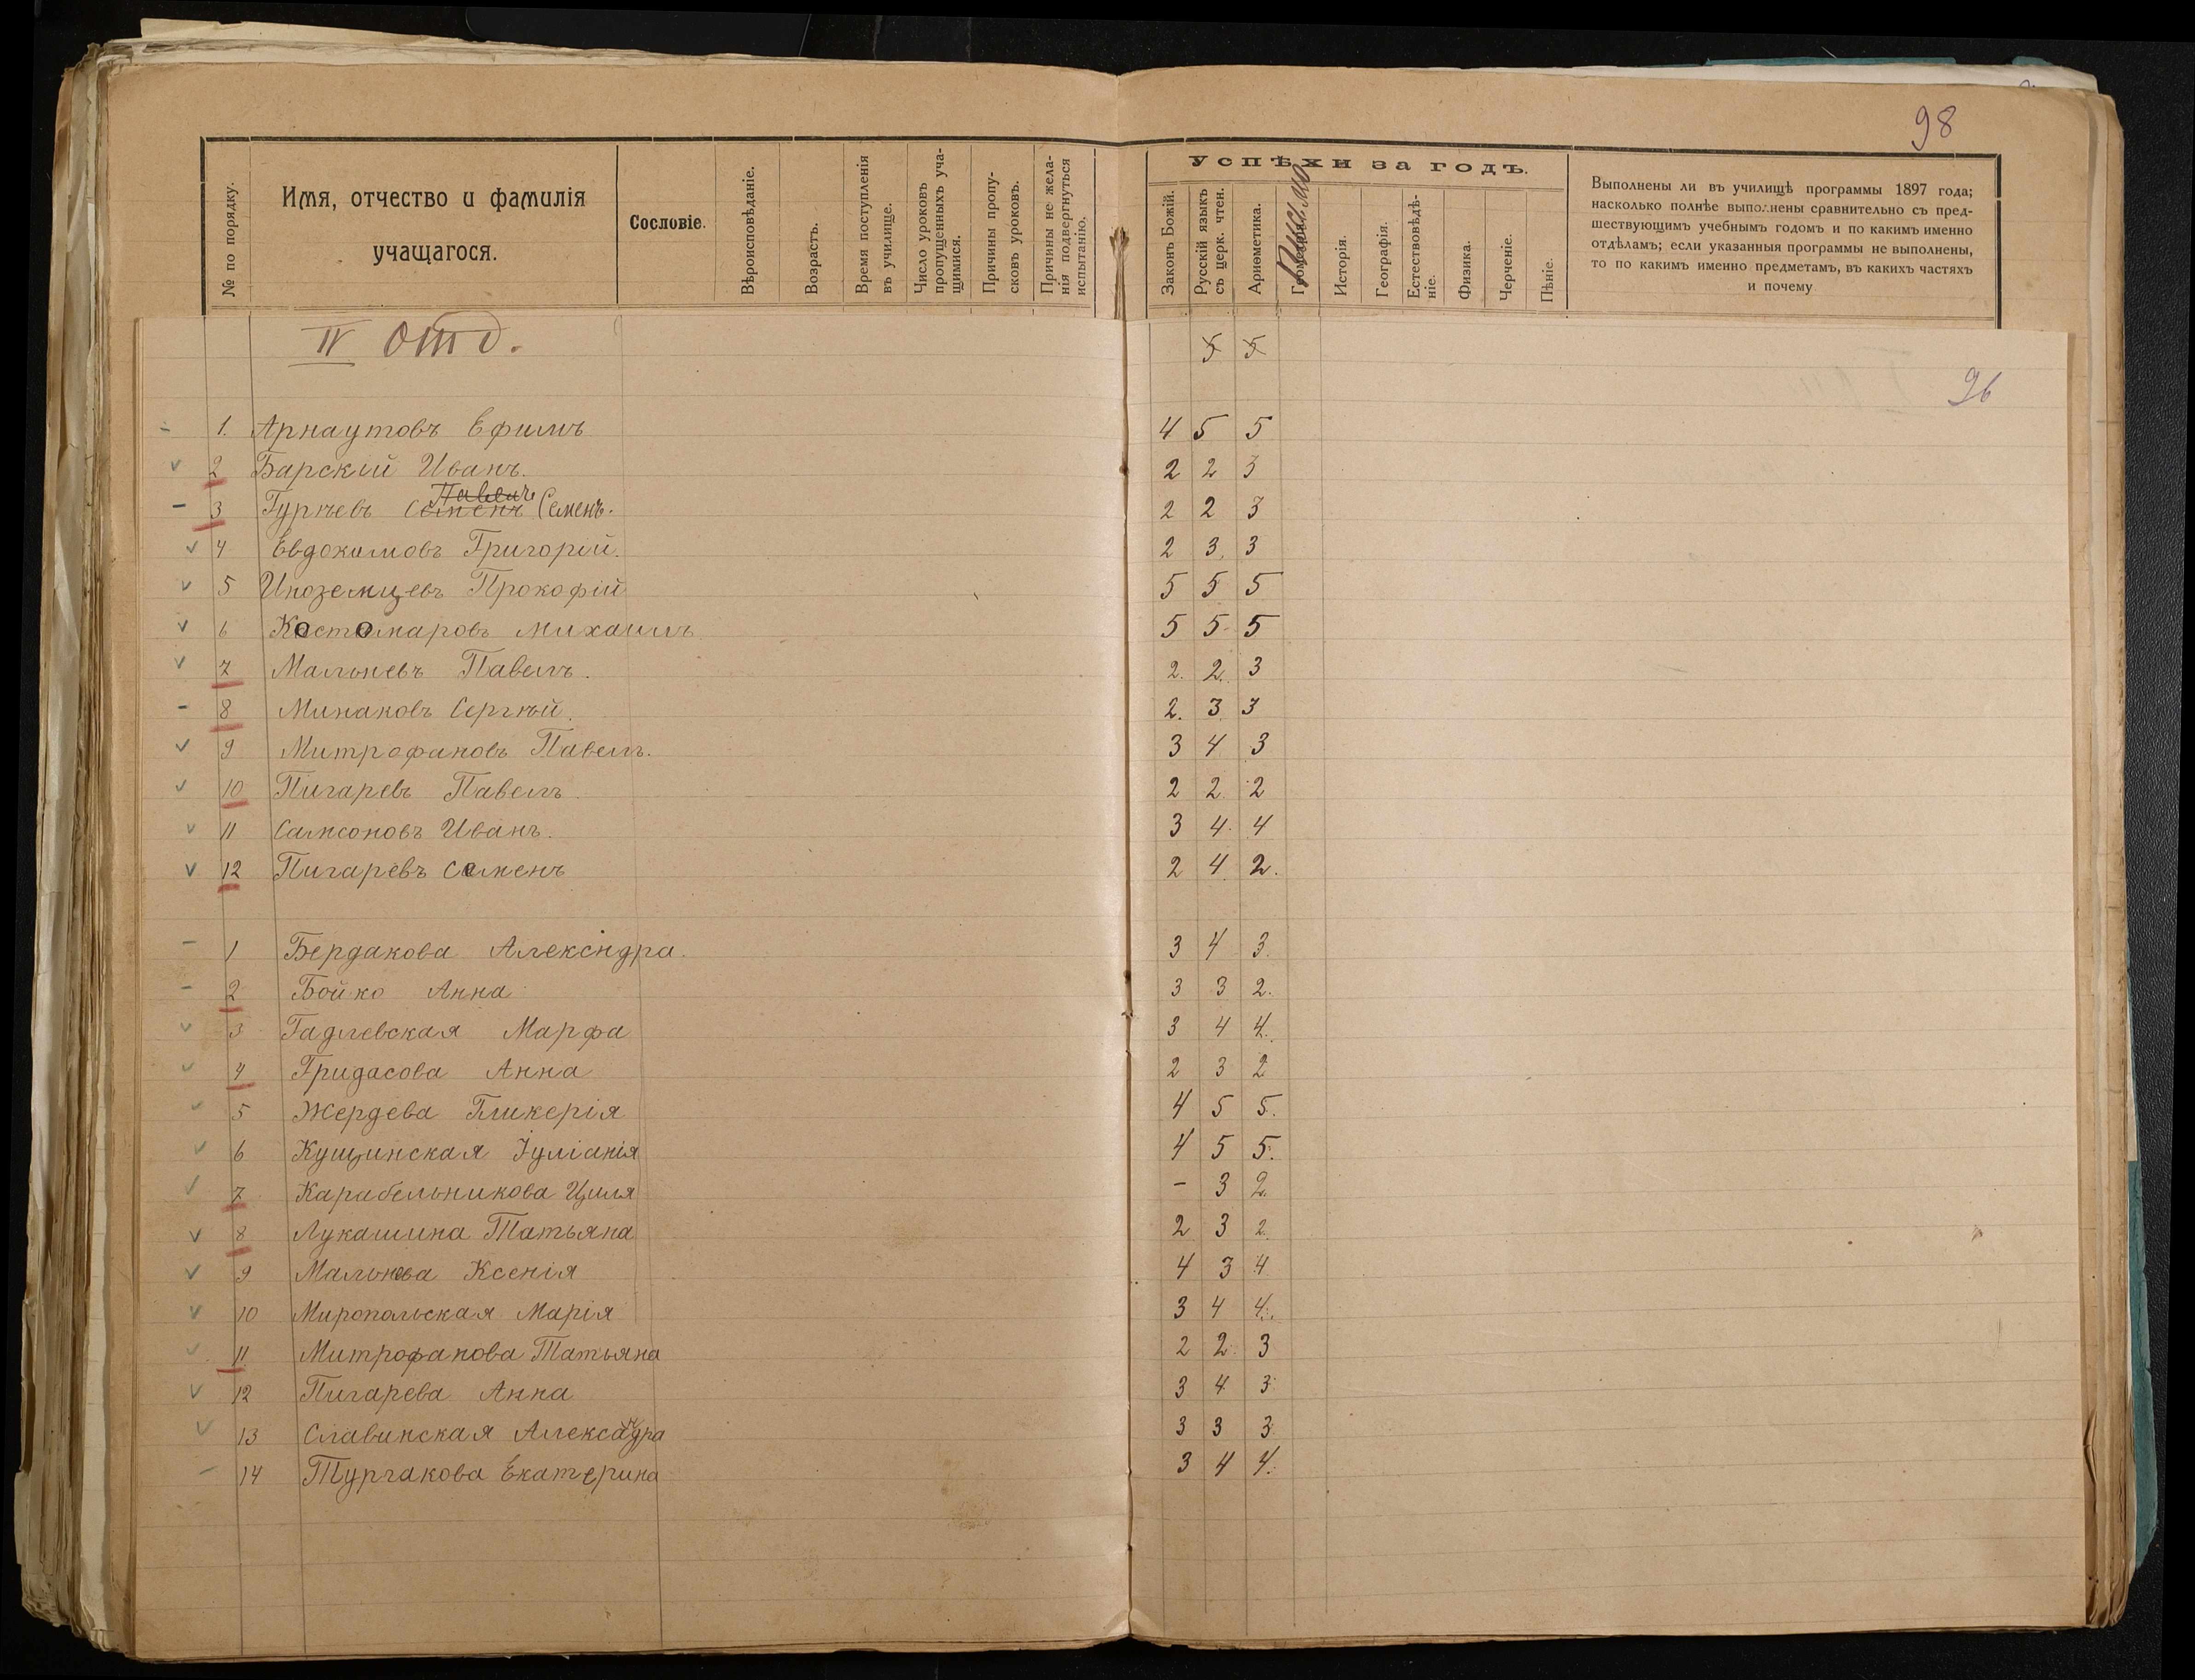 98
№ по порядку.
Имя, отчество и фамилія
учащагося.
Сословіе.
Вѣроисповѣданіе.
Возрастъ.
Время поступленія
въ училище.
Число уроковъ
пропущенныхъ уча-
щимися.
Причины пропу-
сковъ уроковъ.
Причины не жела-
нія подвергнуться
испытанію.
Успѣхи за годъ.
Законъ Божій.
Русскій языкъ
съ церк. чтен.
Ариѳметика.
Геометрія.
Письмо
Исторія.
Географія.
Естествовѣдѣ-
ніе.
Физика.
Черченіе.
Пѣніе.
Выполнены ли въ училищѣ программы 1897 года;
насколько полнѣе выполнены сравнительно съ пред-
шествующимъ учебнымъ годомъ и по какимъ именно
отдѣламъ; если указанныя программы не выполнены,
то по какимъ именно предметамъ, въ какихъ частяхъ
и почему
IV отд. 5 5
96
- 1. Арнаутовъ Ефимъ 4 5 5
v 2 Барскій Иванъ. 2 2 3
Павелъ
- 3 Гурѣевъ Семенъ Семенъ. 2 2 3
v 4 Евдокимовъ Григорій. 2 3 3
v 5 Иноземцевъ Прокофій 5 5 5
v 6 Костомаровъ Михаилъ 5 5 5
v 7 Мальневъ Павелъ. 2. 2. 3
- 8 Минаковъ Сергѣй. 2. 3 3
v 9 Митрофановъ Павелъ. 3 4 3
v 10 Пигаревъ Павелъ. 2 2. 2
v 11 Самсоновъ Иванъ. 3 4. 4
v 12 Пигаревъ Семенъ 2 4 2.
- 1 Бердакова Александра. 3 4 3.
- 2 Бойко Анна 3 3 2.
v 3 Гадлевская Марфа 3 4 4.
v 4 Гридасова Анна 2 3 2
v 5 Жердева Гликерія 4 5 5.
v 6 Кущинская Іуліанія 4 5 5.
v 7 Карабельникова Циля - 3 2.
v 8 Лукашина Татьяна 2 3 2.
v 9 Мальнева Ксенія 4 3 4
v 10 Миропольская Марія 3 4 4.
v 11 Митрофанова Татьяна 2 2. 3
v 12 Пигарева Анна 3 4 3
v 13 Славинская Александра 3 3 3
- 14 Турчакова Екатерина 3 4 4.